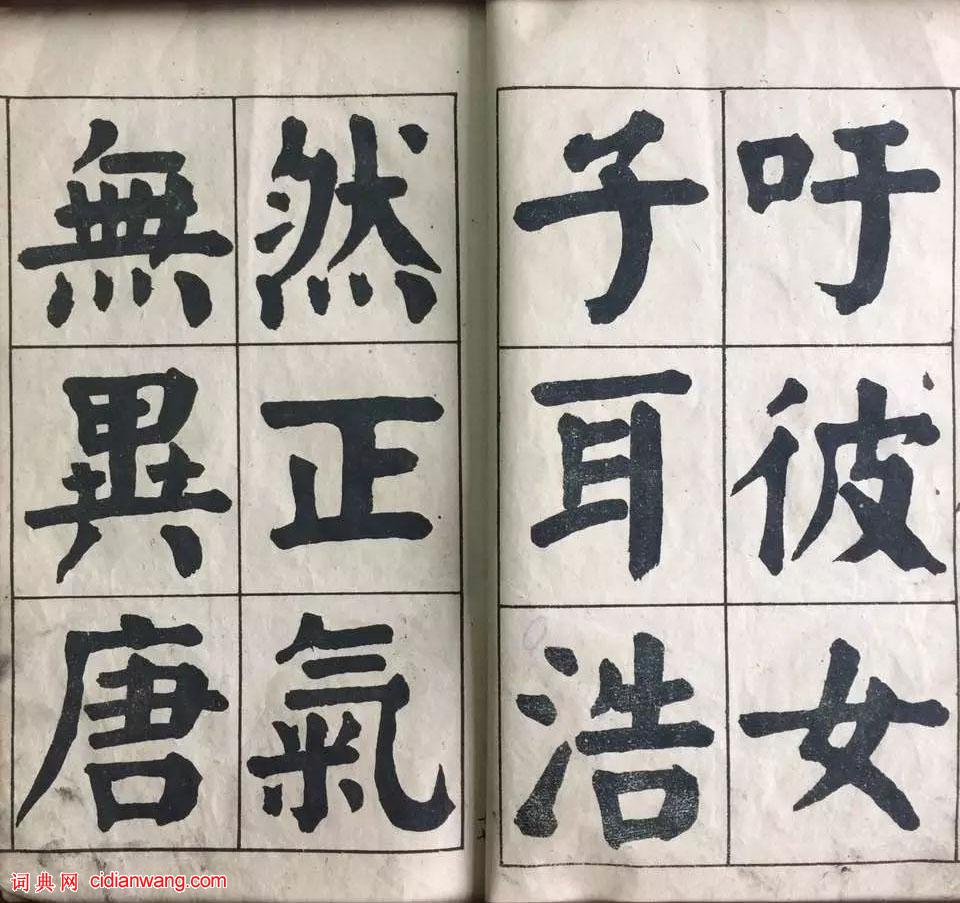 吁彼女
子耳浩
然正氣
無異唐
词典网 cidianwang.com